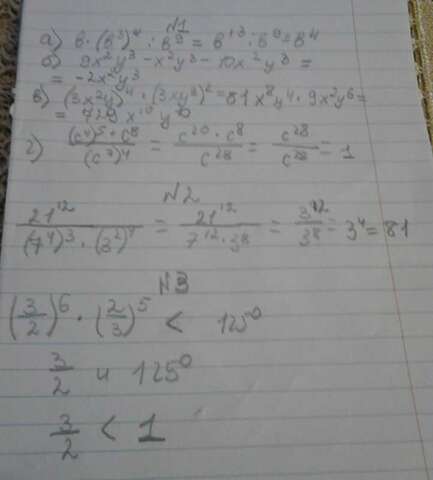 N1
а) b · (b³)⁴ : b⁹ = b¹³ : b⁹ = b⁴
б) 9x²y³ - x²y³ - 10x²y³ =
= -2x²y³
в) (3x²y)⁴ · (3xy³)² = 81x⁸y⁴ · 9x²y⁶ =
= 729x¹⁰y¹⁰
г) (c⁴)⁵ · c⁸ / (c⁷)⁴ = c²⁰ · c⁸ / c²⁸ = c²⁸ / c²⁸ = 1
N2
21¹² / (7⁴)³ · (3²)⁴ = 21¹² / 7¹² · 3⁸ = 3¹² / 3⁸ = 3⁴ = 81
N3
(3/2)⁶ · (2/3)⁵ < 125⁰
3/2 и 125⁰
3/2 < 1